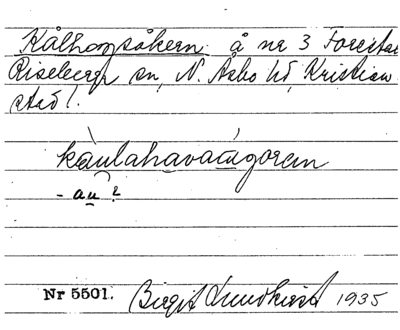 Kålhagsåkern å nr 3 Forestad
Riseberga sn, N. Åsbo hd, Kristian-
stad l.
kaulahavaågorem
- au ?
Nr 5501. Birgit Lundkvist 1935